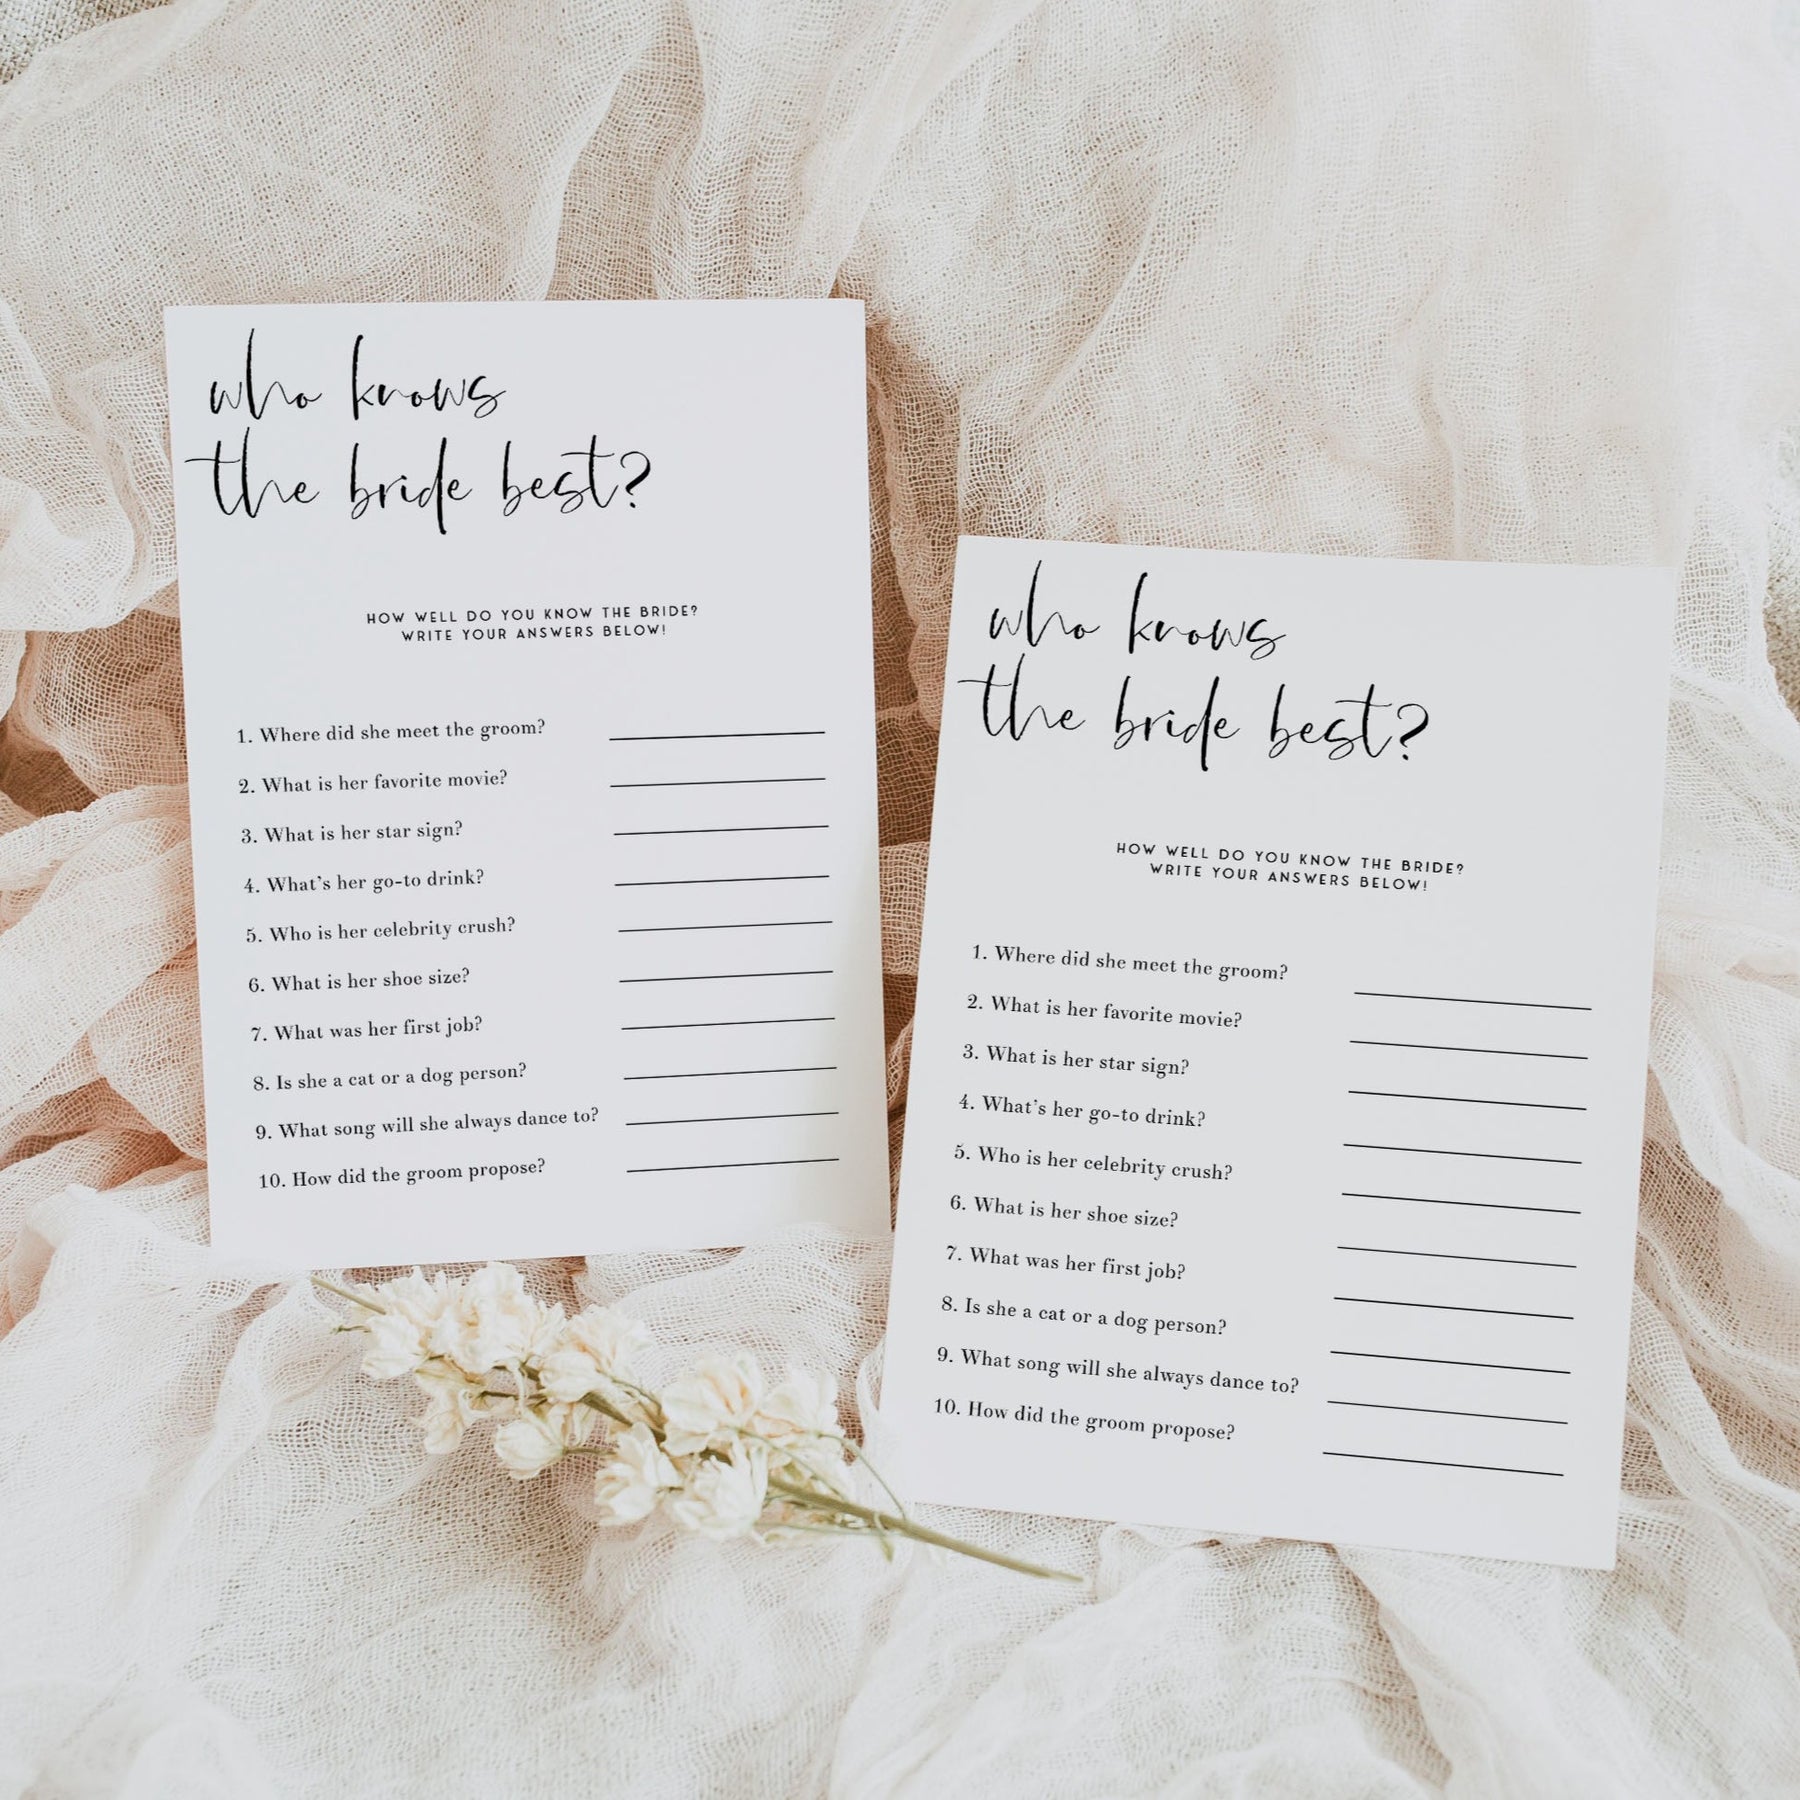 who knows
the bride best?
HOW WELL DO YOU KNOW THE BRIDE?
WRITE YOUR ANSWERS BELOW!
1. Where did she meet the groom?
2. What is her favorite movie?
3. What is her star sign?
4. What's her go-to drink?
5. Who is her celebrity crush?
6. What is her shoe size?
7. What was her first job?
8. Is she a cat or a dog person?
9. What song will she always dance to?
10. How did the groom propose?
who knows
the bride best?
HOW WELL DO YOU KNOW THE BRIDE?
WRITE YOUR ANSWERS BELOW!
1. Where did she meet the groom?
2. What is her favorite movie?
3. What is her star sign?
4. What's her go-to drink?
5. Who is her celebrity crush?
6. What is her shoe size?
7. What was her first job?
8. Is she a cat or a dog person?
9. What song will she always dance to?
10. How did the groom propose?